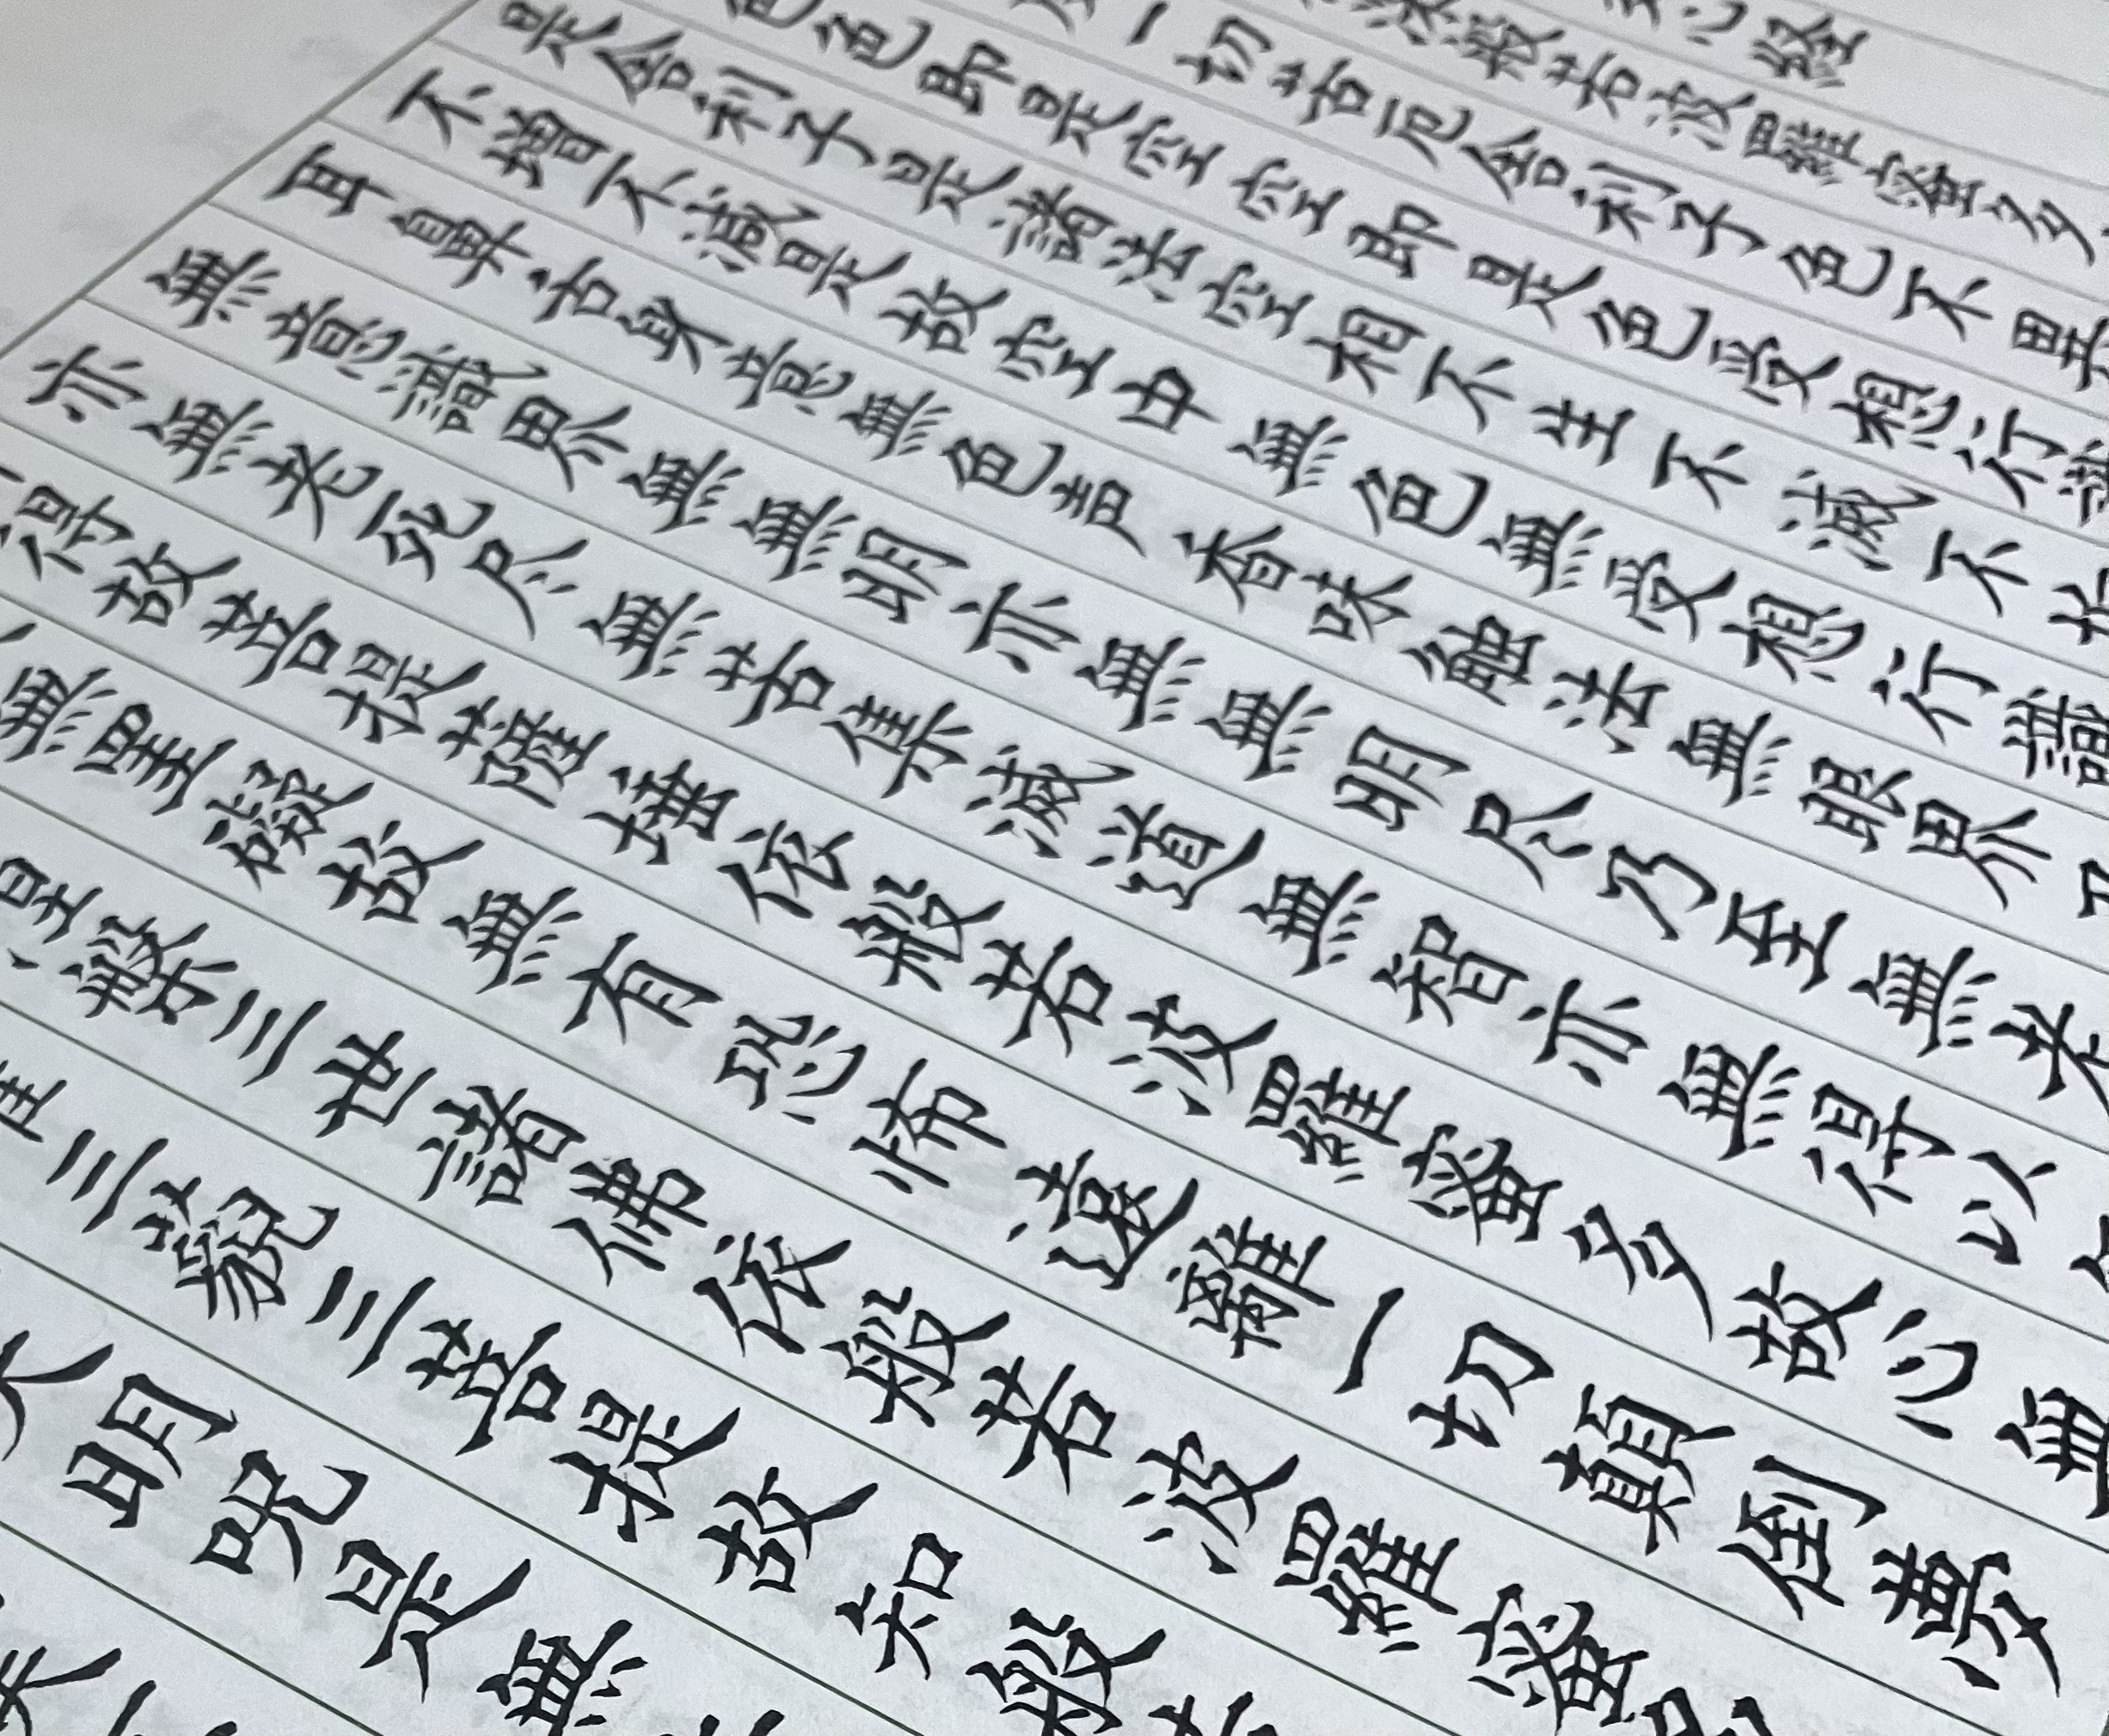 心經
深般若波羅蜜多
一切苦厄舍利子色不異
色色即是空空即是色受想行識
是舍利子是諸法空相不生不滅不垢
不增不減是故空中無色無受想行識
耳鼻舌身意無色声香味觸法無眼界乃
無意識界無無明亦無無明尽乃至無老
亦無老死尽無苦集滅道無智亦無得以
得故菩提薩埵依般若波羅蜜多故心無
無罣礙故無有恐怖遠離一切顛倒夢
涅槃三世諸佛依般若波羅蜜
三藐三菩提故知般若
大明呪是無